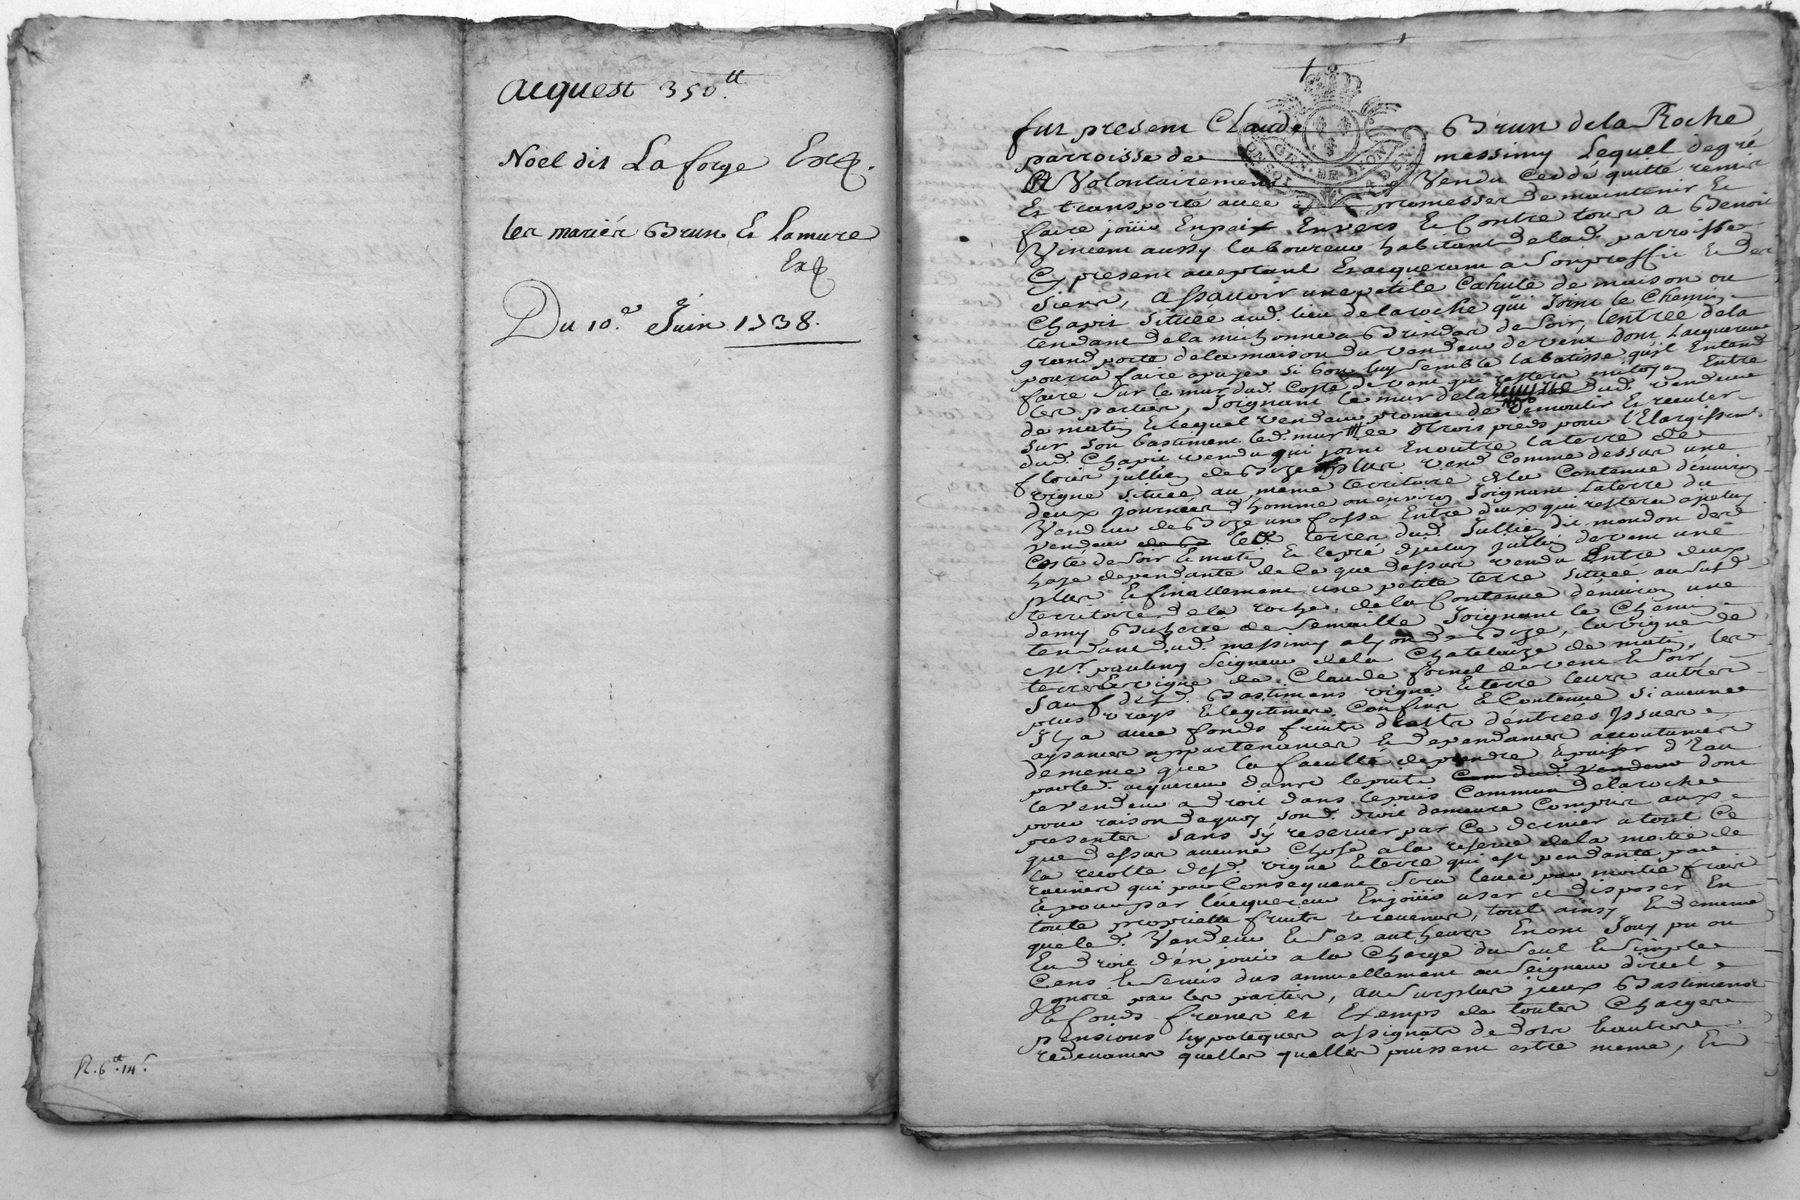 acquest 350.tt
Noel dit La forge Exp.
les mariés Brun Et Lamure
Exp
Du 10.e Juin 1738.
R. 6.tt 14.s
fut present Claude Brun de la Roche
parroisse de messimy Lequel de gré
Et Volontairement a Vendu Ceddé quitté remis
Et transporté avec promesses de maintenir Et
faire joüir En paix Envers Et Contre tous a Benoit
Vincent aussy laboureur habitant de lad. parroisse
Cy present acceptant Et acquerant a Son proffit Et des
Siens, assavoir une petite Cahute de maison ou
Chapit Située aud. lieu de la roche qui Joint le Chemin
tendant de la michonne a Brindas de Soir, lentrée de la
grand porte de la maison du vendeur de vent dont lacquereur
pourra faire apuyer Si bon luy Semble la batisse quil Entend
faire Sur le mur dud. Costé de vent qui restera mitoyen Entre
les parties, Joignant le mur de la dud. vendeur
de matin Et lequel vendeur promet de demoulir Et reculer
Sur Son bastiment led. mur de trois pieds pour l'Elargissement
dud. Chapit vendu qui joint En outre la terre de
fleury jullien de Bize plus vend Comme dessus une
vigne Située au meme territoire de la Contenue d'environ
deux journées d'homme ou environ Joignant la terre du
Vendeur de Bize un fossé Entre deux qui restera apelu
vendeur les terres dud. Jullien dit mondon de
Costé de Soir Et matin Et le pré d'jullien de vent une
haye dependante de Ce que dessus vendu Entre deux
plus Et finallement une petite terre Située au Susd.
territoire de la roche, de la Contenue d'environ une
demy Bicherée de Semaille Joignant le Chemin
tendant dud. messimy a lyon de Bize, la vigne de
Mr. Seigneur de la Chatelaize de matin, les
terre Et vigne de Claude fornel de vent Et Soir,
Sauf desd. Bastimens vigne Et terre leurs autres
plus vrays Et legitimes Confins Et Contenue Si aucunes
Il y a avec fonds fruits droits d'entrées Issues
aysances appartenances Et dependances accoutumées
de meme que la faculté de prendre Et puiser d'Eau
par led. acquereur dans le puits Commun dud. vendeur dont
le vendeur a droit dans le puis Commun de la roche
pour raison de quoy Sond. droit demeure Compris aux
presentes Sans S'y reserver par Ce dernier a tout Ce
que dessus aucune Chose a la reserve de la moitié de
la recolte desd. vigne Et terre qui est pendante par
racines qui par Consequent Sera levée par moitié frais
Et pour par lacquereur En joüir user et disposer En
toute proprietté fruits Et revenus, tout ainsy Et de meme
que led. Vendeur Et Ses autheurs En ont Jouy pu ou
Eu droit d'en jouir a la Charge du Seul Et Simple
Cens Et Servis dus annuellement au Seigneur direct
Ignoré par les parties, au Surplus jceux Bastimens
Et fonds francs et Exemps de toutes Charges
pensions hypoteques assignats de dots Et autres
redevances quelles quelles puissent estre meme, Et